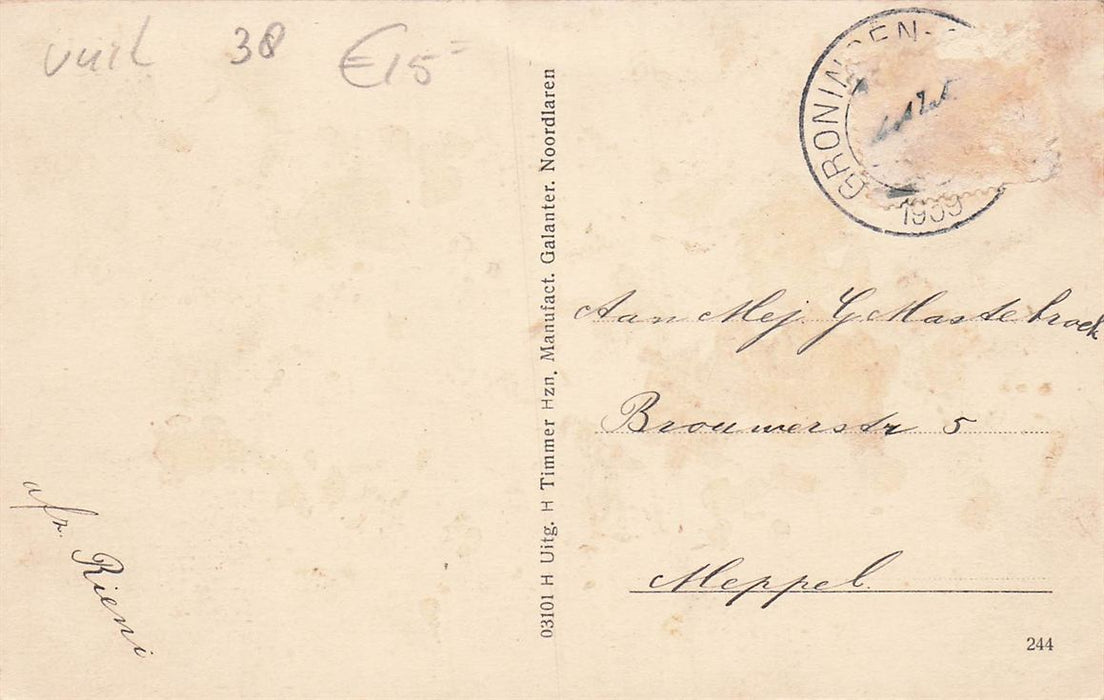 vuil 38 €15=
GRONINGEN
1939
03101 H Uitg. H Timmer Hzn. Manufact. Galanter. Noordlaren
Aan Mej. G Mastebroek
Brouwerstr 5
Meppel.
afz. Rieni
244